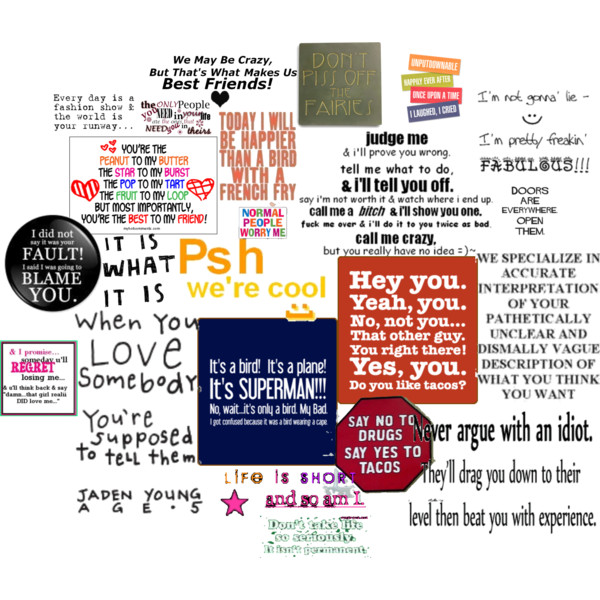 We May Be Crazy,
But That's What Makes Us
Best Friends!
Every day is a
fashion show &
the world is
your runway...
the ONLY People
you NEED in your life
are the ones that
NEED you in theirs
DON'T
PISS OFF
THE
FAIRIES
UNPUTDOWNABLE
HAPPILY EVER AFTER
ONCE UPON A TIME
I LAUGHED, I CRIED
I'm not gonna' lie -
I'm pretty freakin'
FABULOUS!!!
TODAY I WILL
BE HAPPIER
THAN A BIRD
WITH A
FRENCH FRY
YOU'RE THE
PEANUT TO MY BUTTER
THE STAR TO MY BURST
THE POP TO MY TART
THE FRUIT TO MY LOOP
BUT MOST IMPORTANTLY,
YOU'RE THE BEST TO MY FRIEND!
judge me
& i'll prove you wrong.
tell me what to do,
& i'll tell you off.
say i'm not worth it & watch where i end up.
call me a bitch & i'll show you one.
fuck me over & i'll do it to you twice as bad.
call me crazy,
but you really have no idea =)~
DOORS
ARE
EVERYWHERE
OPEN
THEM.
NORMAL
PEOPLE
WORRY ME
I did not
say it was your
FAULT!
I said I was going to
BLAME
YOU.
IT IS
WHAT
IT IS
Psh
we're cool
Hey you.
Yeah, you.
No, not you...
That other guy.
You right there!
Yes, you.
Do you like tacos?
WE SPECIALIZE IN
ACCURATE
INTERPRETATION
OF YOUR
PATHETICALLY
UNCLEAR AND
DISMALLY VAGUE
DESCRIPTION OF
WHAT YOU THINK
YOU WANT
When You
LOVE
Somebody
You're
Supposed
to tell them
JADEN YOUNG
AGE.5
& I promise...
someday u'll
REGRET
losing me...
& u'll think back & say
"damn...that girl realli
DID love me..."
It's a bird! It's a plane!
It's SUPERMAN!!!
No, wait...it's only a bird. My Bad.
I got confused because it was a bird wearing a cape.
SAY NO TO
DRUGS
SAY YES TO
TACOS
Never argue with an idiot.
They'll drag you down to their
level then beat you with experience.
LIFE IS SHORT
and so am I
Don't take life
so seriously.
It isn't permanent.